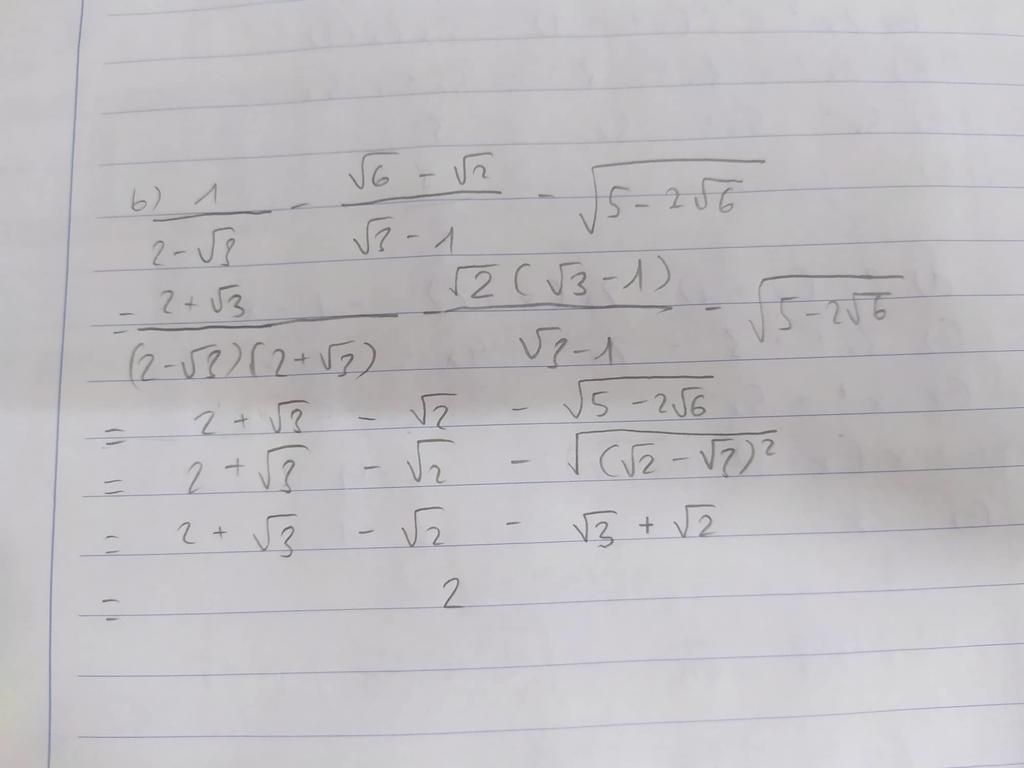 b) 1/(2 - √3) - (√6 - √2)/(√3 - 1) - √(5 - 2√6)
= (2 + √3)/((2 - √3)(2 + √3)) - (√2(√3 - 1))/(√3 - 1) - √(5 - 2√6)
= 2 + √3 - √2 - √(5 - 2√6)
= 2 + √3 - √2 - √((√2 - √3)²)
= 2 + √3 - √2 - √3 + √2
= 2